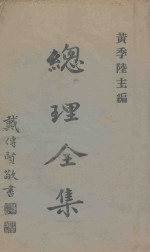 黃季陸主編
總理全集
戴傳賢敬書